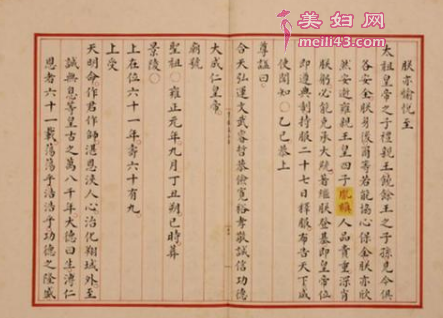 美妇网
meili43.com
朕亦愉悅至
太祖皇帝之子禮親王饒餘王之子孫見今俱
各安全朕身後爾等若能協心保全朕亦欣
然安逝雍親王皇四子胤禛人品貴重深肖
朕躬必能克承大統著繼朕登基即皇帝位
即遵典制持服二十七日釋服布告天下咸
使聞知○乙巳恭上
尊謚曰
合天弘運文武睿哲恭儉寬裕孝敬誠信功德
大成仁皇帝
廟號
聖祖○雍正元年九月丁丑朔巳時葬
景陵○
上在位六十一年壽六十有九
上受
天明命作君作師湛恩浹人心治化翔域外至
誠無息等皇古之萬八千年大德曰生溥仁
恩者六十一載蕩蕩乎浩浩乎功德之隆